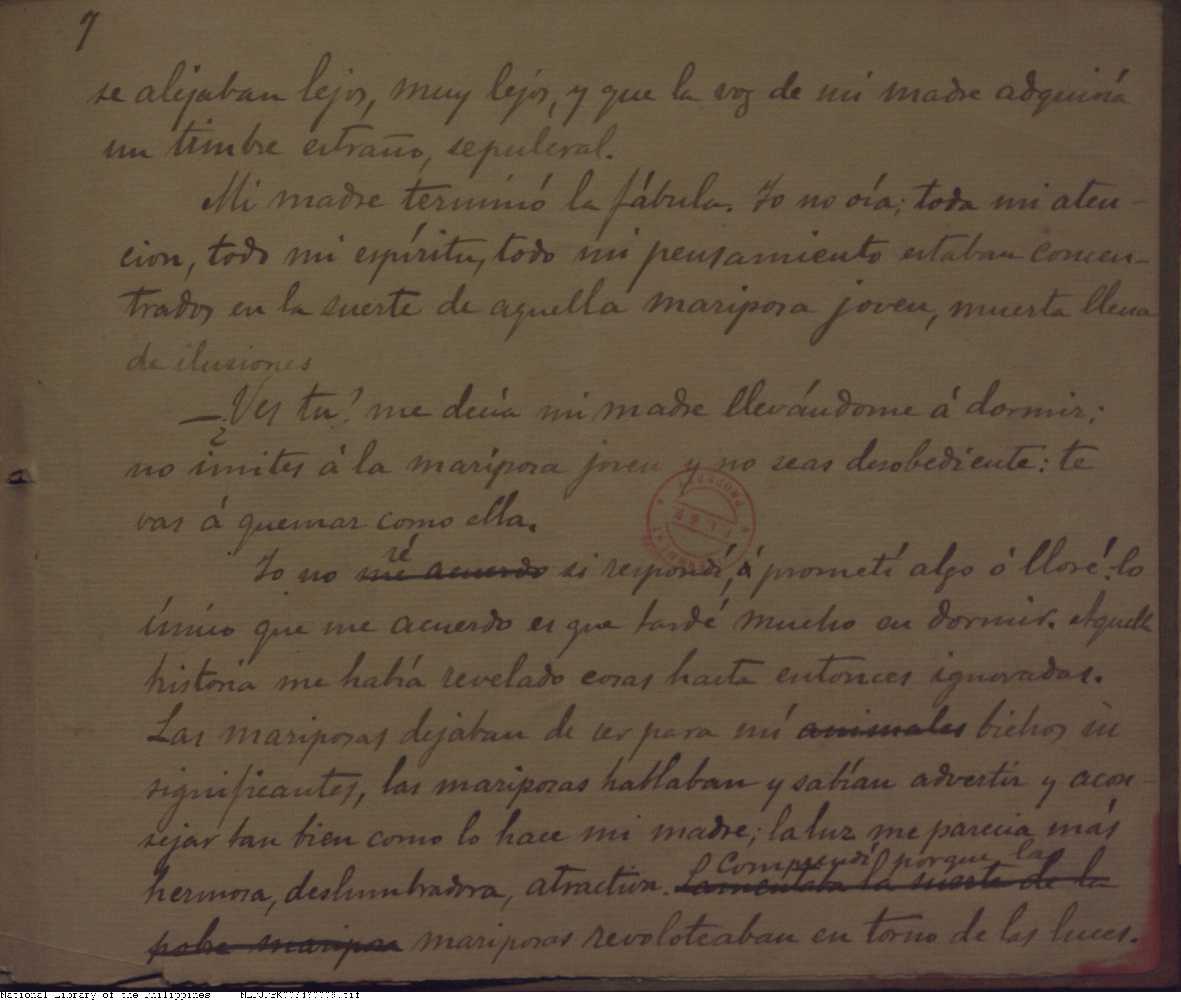 7
se alejaban lejos, muy lejos, y que la voz de mi madre adquiría
un timbre estraño, sepulcral.
Mi madre terminó la fábula. Yo no oía; toda mi aten-
cion, todo mi espíritu, todo mi pensamiento estaban concen-
trados en la suerte de aquella mariposa joven, muerta llena
de ilusiones
—¿Ves tu? me decía mi madre llevándome á dormir;
no imites á la mariposa joven y no seas desobediente: te
vas á quemar como ella.
Yo no me acuerdo sé si respondí, á prometí algo ó lloré: lo
único que me acuerdo es que tardé mucho en dormir. Aquella
historia me había revelado cosas hasta entonces ignoradas.
Las mariposas dejaban de ser para mí animales bichos in
significantes, las mariposas hablaban y sabían advertir y acon-
sejar tan bien como lo hace mi madre; la luz me parecia más
hermosa, deslumbradora, atractiva. Comprendí porque las
Lamentaba la suerte de la
pobre mariposa mariposas revoloteaban en torno de las luces.
National Library of the Philippines